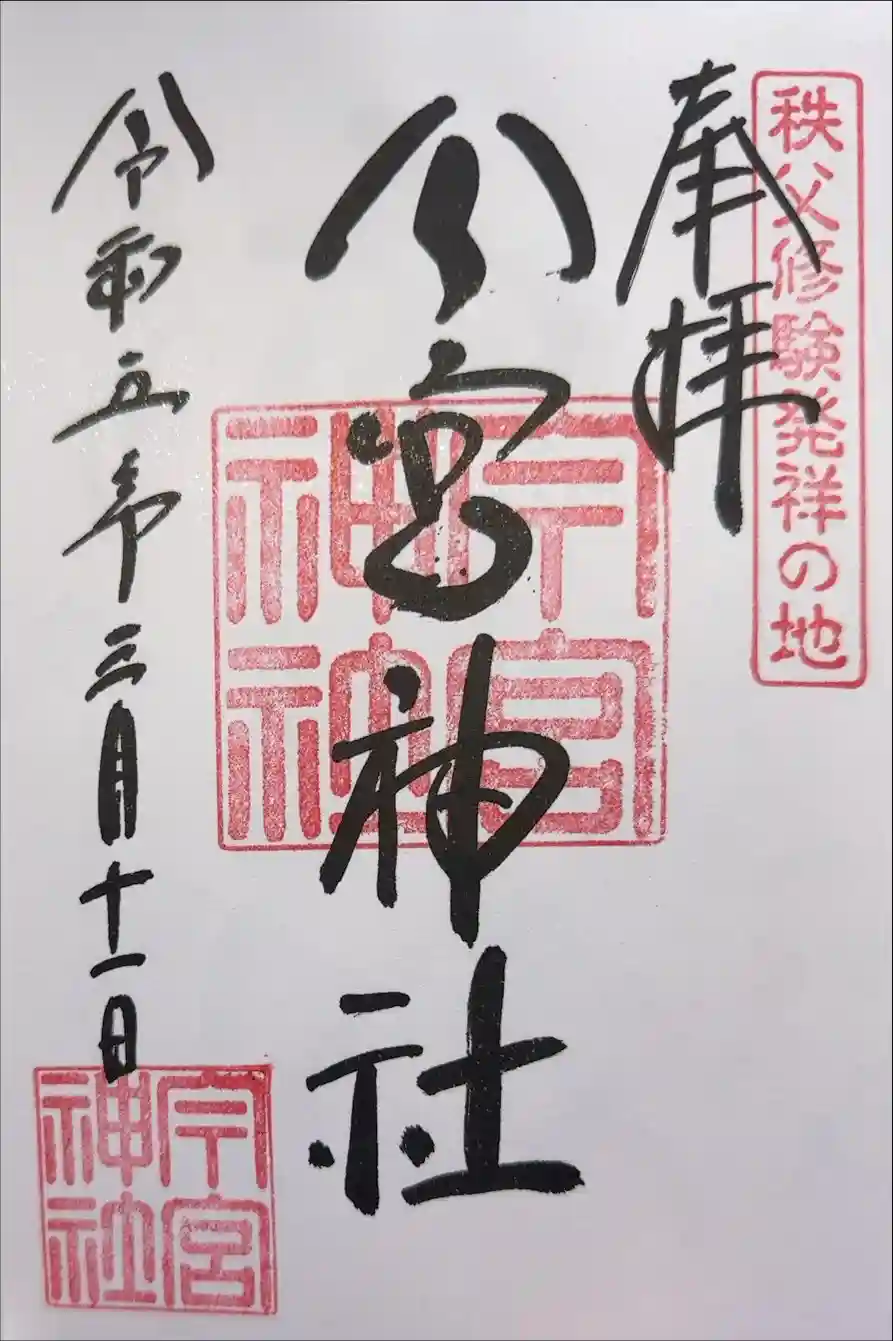 秩父修験発祥の地
奉拝
今宮神社
今宮神社
令和五年三月十一日
今宮神社